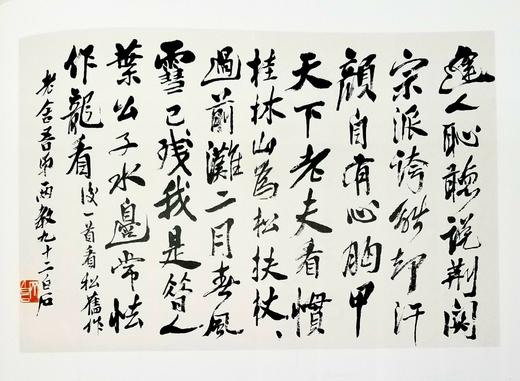 逢人耻听说荆关
宗派夸能却汗
颜自有心胸甲
天下老夫看惯
桂林山为松扶杖
过前滩二月春风
雪已残我是昔人
叶公子水边常怯
作龙看 后一首看松旧作
老舍吾弟两教九十二白石